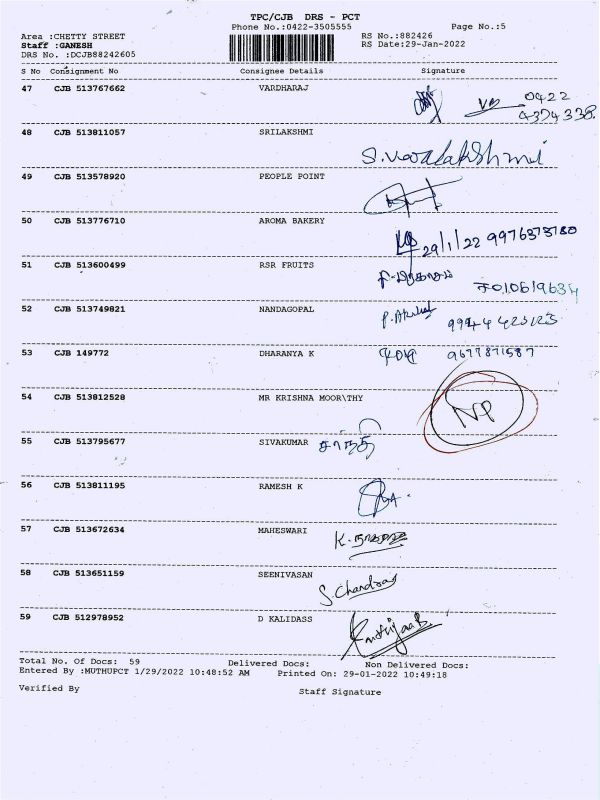 TPC/CJB DRS - PCT
Phone No.:0422-3505555
Page No.:5
Area :CHETTY STREET
RS No.:882426
Staff :GANESH
RS Date:29-Jan-2022
DRS No. :DCJB88242605
S No Consignment No Consignee Details Signature
47 CJB 513767662 VARDHARAJ
0422
4374338.
48 CJB 513811057 SRILAKSHMI
49 CJB 513578920 PEOPLE POINT
50 CJB 513776710 AROMA BAKERY
29/1/22
51 CJB 513600499 RSR FRUITS
52 CJB 513749821 NANDAGOPAL
53 CJB 149772 DHARANYA K
9677871587
54 CJB 513812528 MR KRISHNA MOOR\THY
NP
55 CJB 513795677 SIVAKUMAR சாந்தி
56 CJB 513811195 RAMESH K
57 CJB 513672634 MAHESWARI
58 CJB 513651159 SEENIVASAN
S. Chandran
59 CJB 512978952 D KALIDASS
Total No. Of Docs: 59 Delivered Docs: Non Delivered Docs:
Entered By :MUTHUPCT 1/29/2022 10:48:52 AM Printed On: 29-01-2022 10:49:18
Verified By Staff Signature